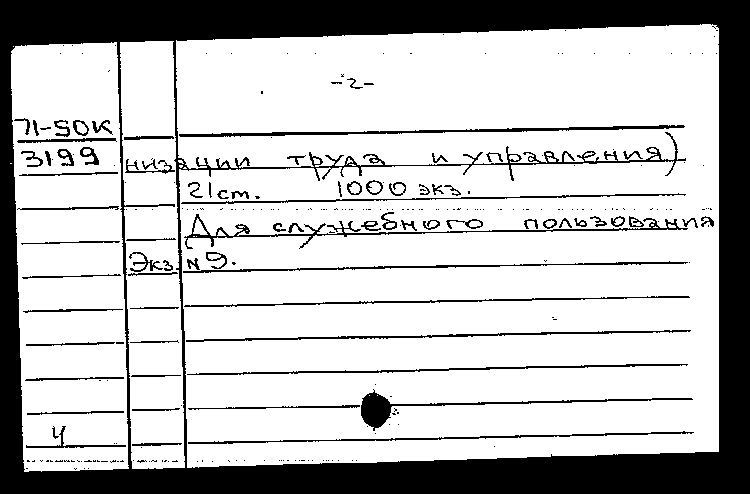 -2-
71-50К
3199 низации труда и управления)
21 см. 1000 экз.
Для служебного пользования
Экз. № 9.
4